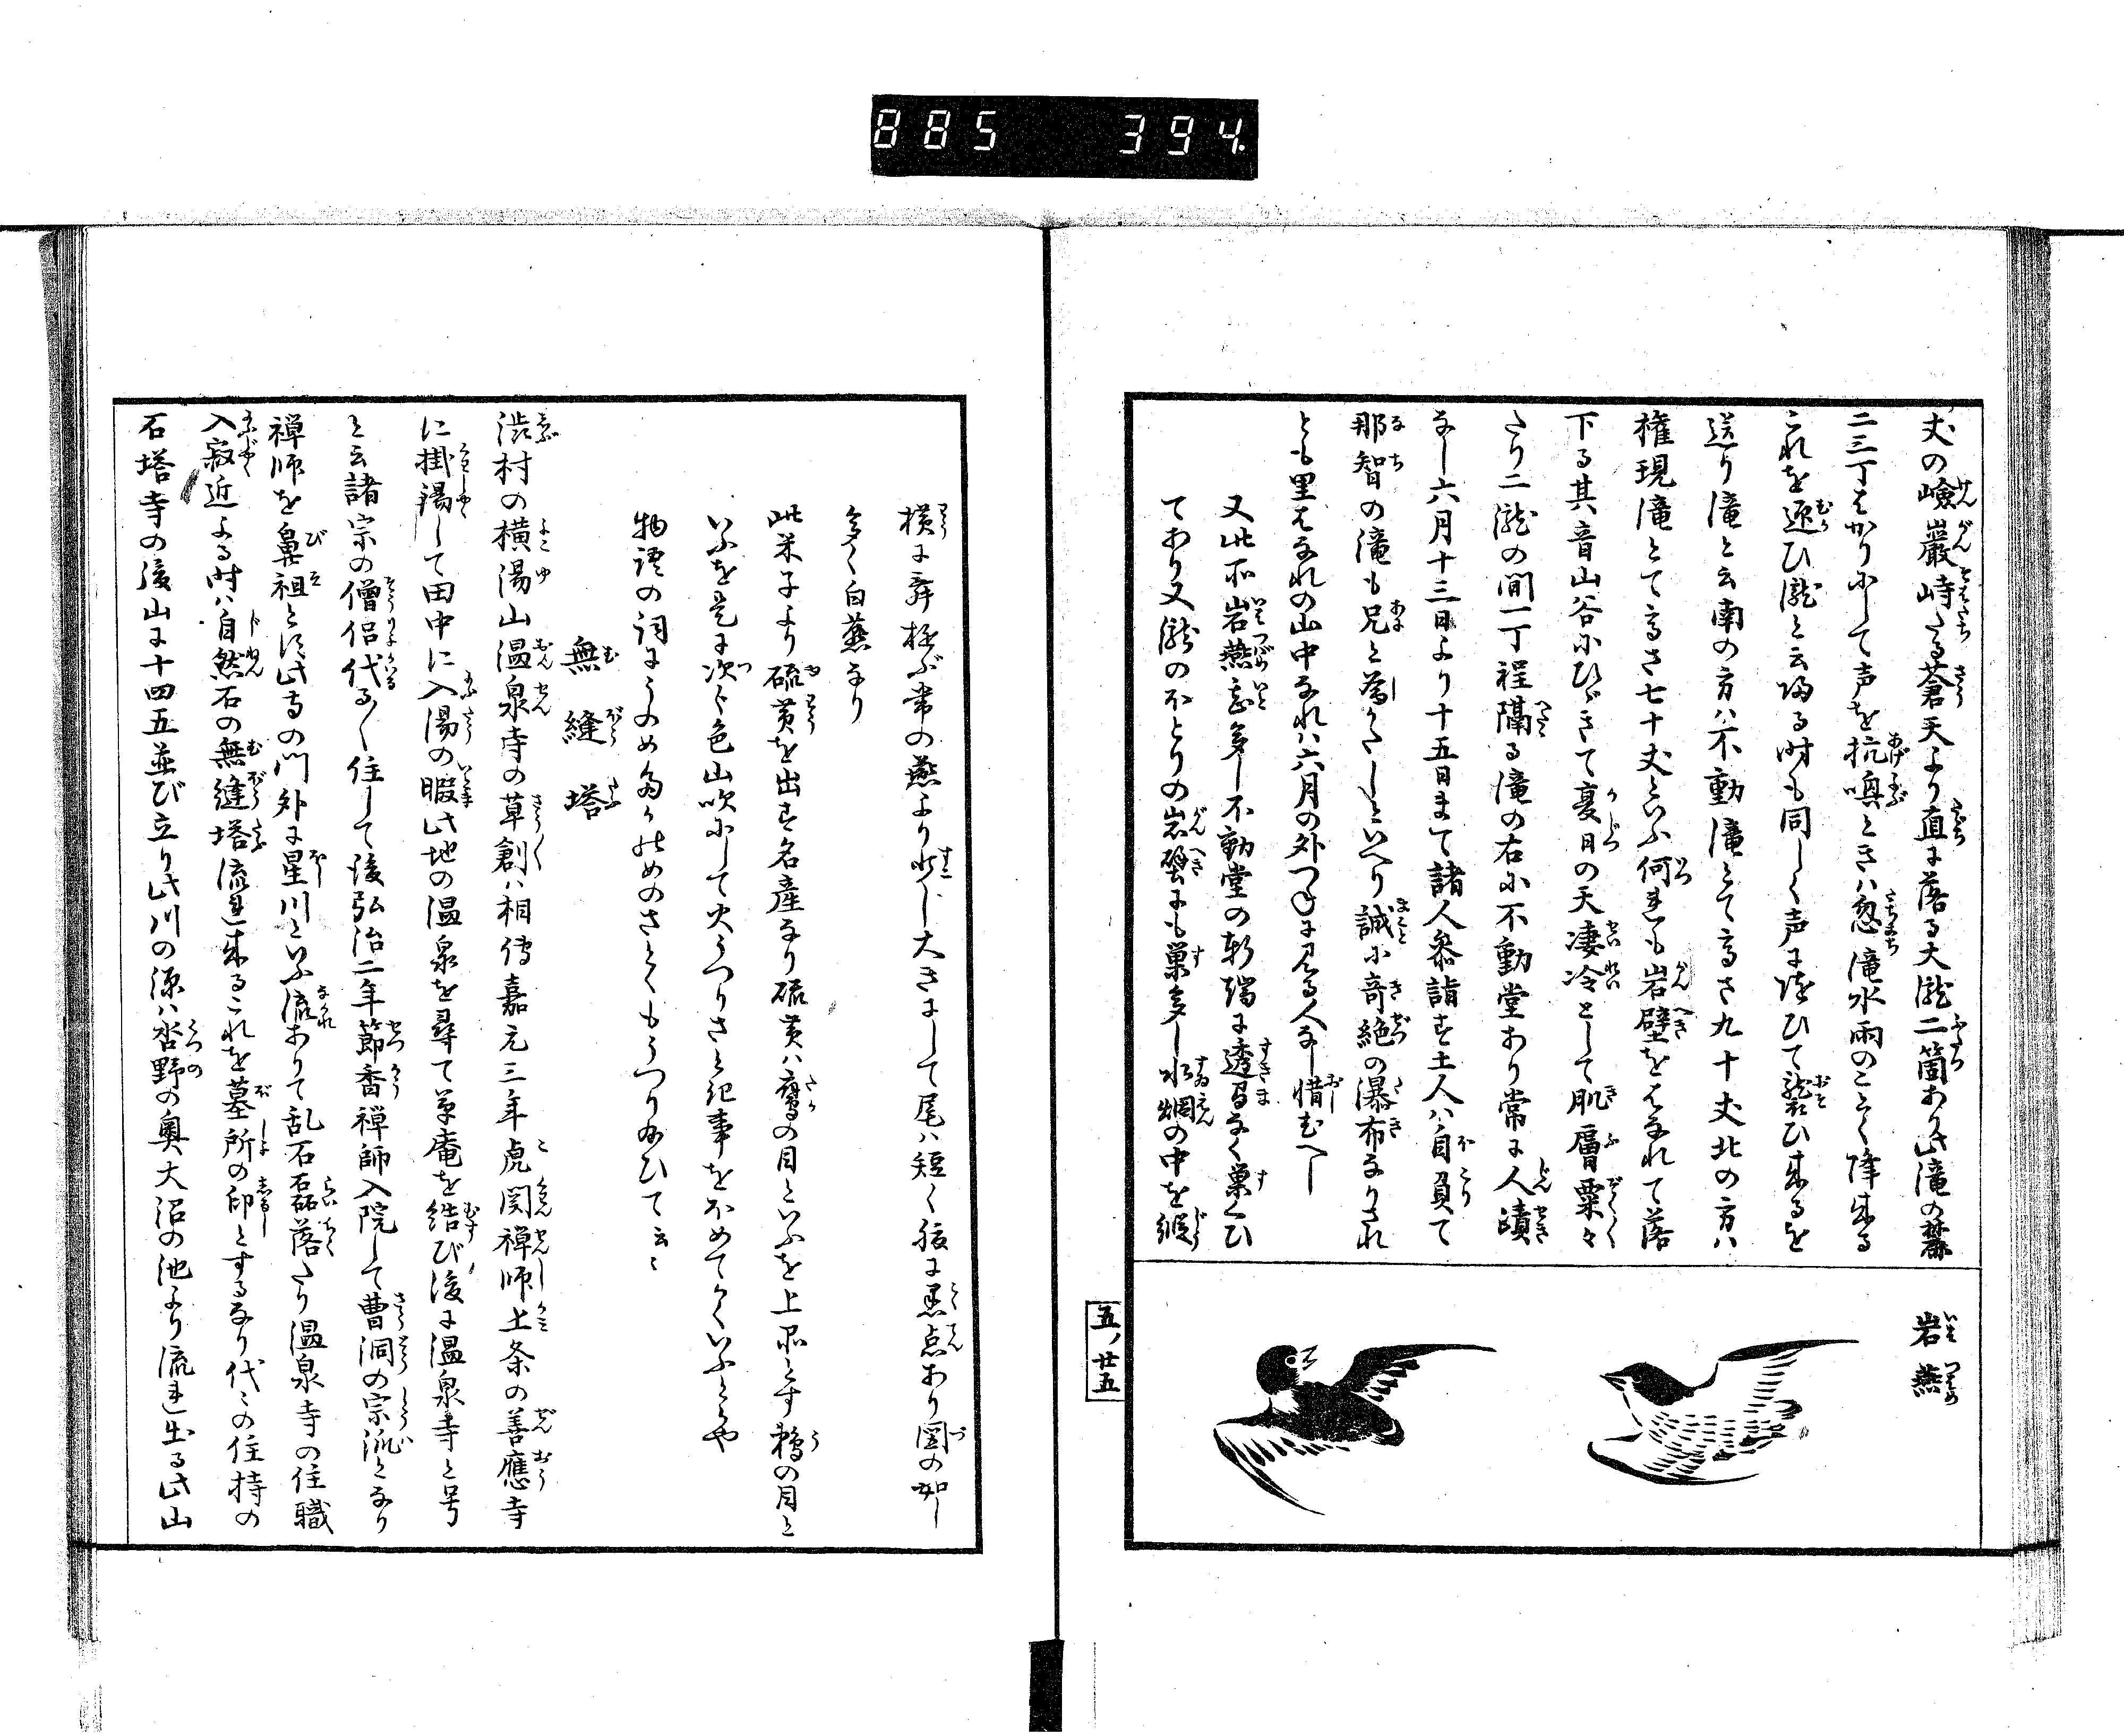 885 394.
丈の嶮巖峙たる蒼天より直に落る大瀧二箇あり此滝の麓
二三丁はかりにして声を抗嘷ときハ忽滝水雨のことく降来る
これを迎ひ瀧と云帰る時も同しく声に随ひて襲ひ来るを
送り滝と云南の方ハ不動滝とて高さ九十丈北の方ハ
権現滝とて高さ七十丈といふ何れも岩壁をはなれて落
下る其音山谷にひゞきて夏日の天凄冷として肌膚粟々
たり二瀧の間一丁程隔る滝の右に不動堂あり常に人蹟
なし六月十三日より十五日まて諸人参詣す土人ハ自負て
那智の滝も兄と為かたしといへり誠に奇絶の瀑布なりされ
とも里はなれの山中なれハ六月の外つねに見る人なし惜むへし
又此所岩燕甚多し不動堂の軒端に透間なく巣くひ
てあり又瀧のほとりの岩壁にも巣多し水烟の中を縦
岩燕
五ノ廿五
横に舞遊ぶ常の燕より少し大きにして尾ハ短く腹に黒点あり図の如し
多く白燕なり
此米子より硫黄を出す名産なり硫黄ハ鷹の目といふを上品とす鵜の目と
いふを是に次ぐ色山吹にして火うつりさとし紀事をほめてかくいふとかや
物語の詞に
無縫塔
渋村の横湯山温泉寺の草創ハ相傳嘉元三年虎関禅師上条の善應寺
に掛錫して田中に入湯の暇此地の温泉を尋て草庵を結び後に温泉寺と号
と云諸宗の僧侶代る〱住して後弘治二年節香禅師入院して曹洞の宗派となり
禅師を鼻祖とす此寺の門外に星川といふ流ありて乱石磊落たり温泉寺の住職
入寂近よる時ハ自然石の無縫塔流れ来るこれを墓所の印とするなり代々の住持の
石塔寺の後山に十四五並び立り此川の源ハ沓野の奥大沼の池より流れ出る此山